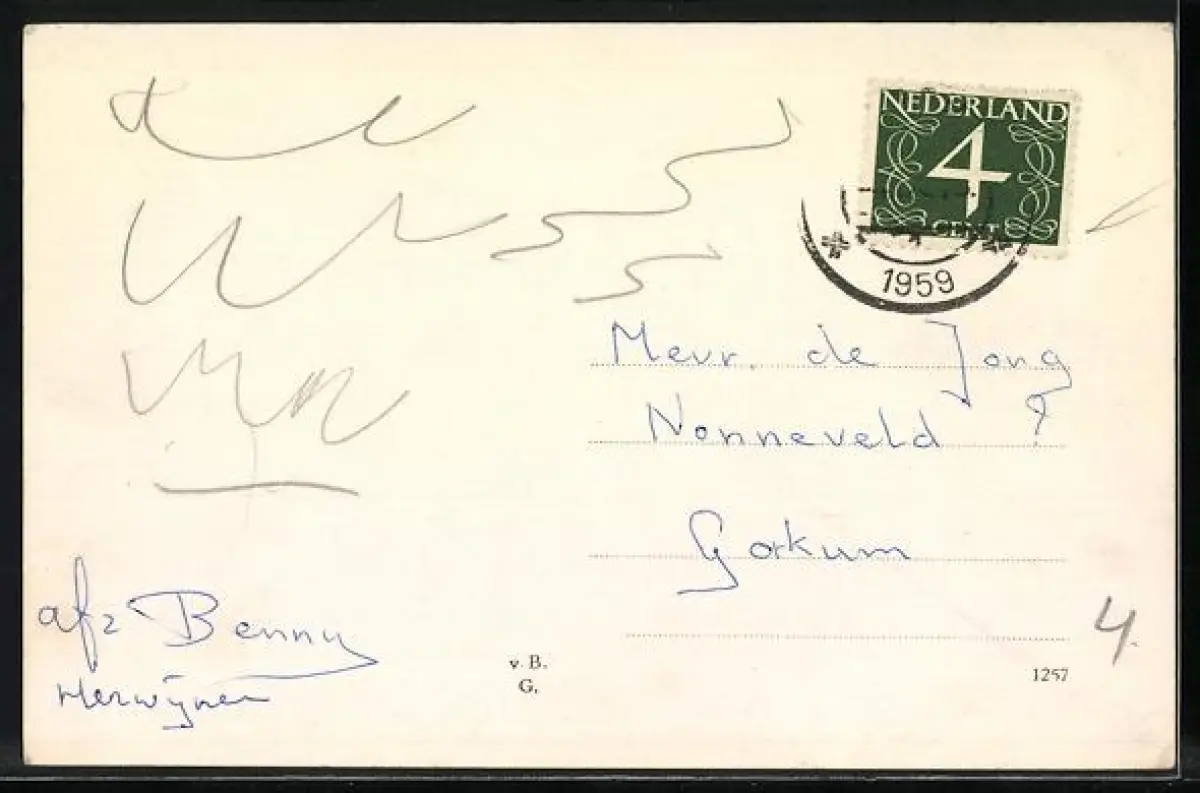 NEDERLAND
4
CENT
1959
Mevr. de Jong
Nonneveld ?
Gorkum
afz Benny
Herwijnen
4.
v. B.
G.
1257